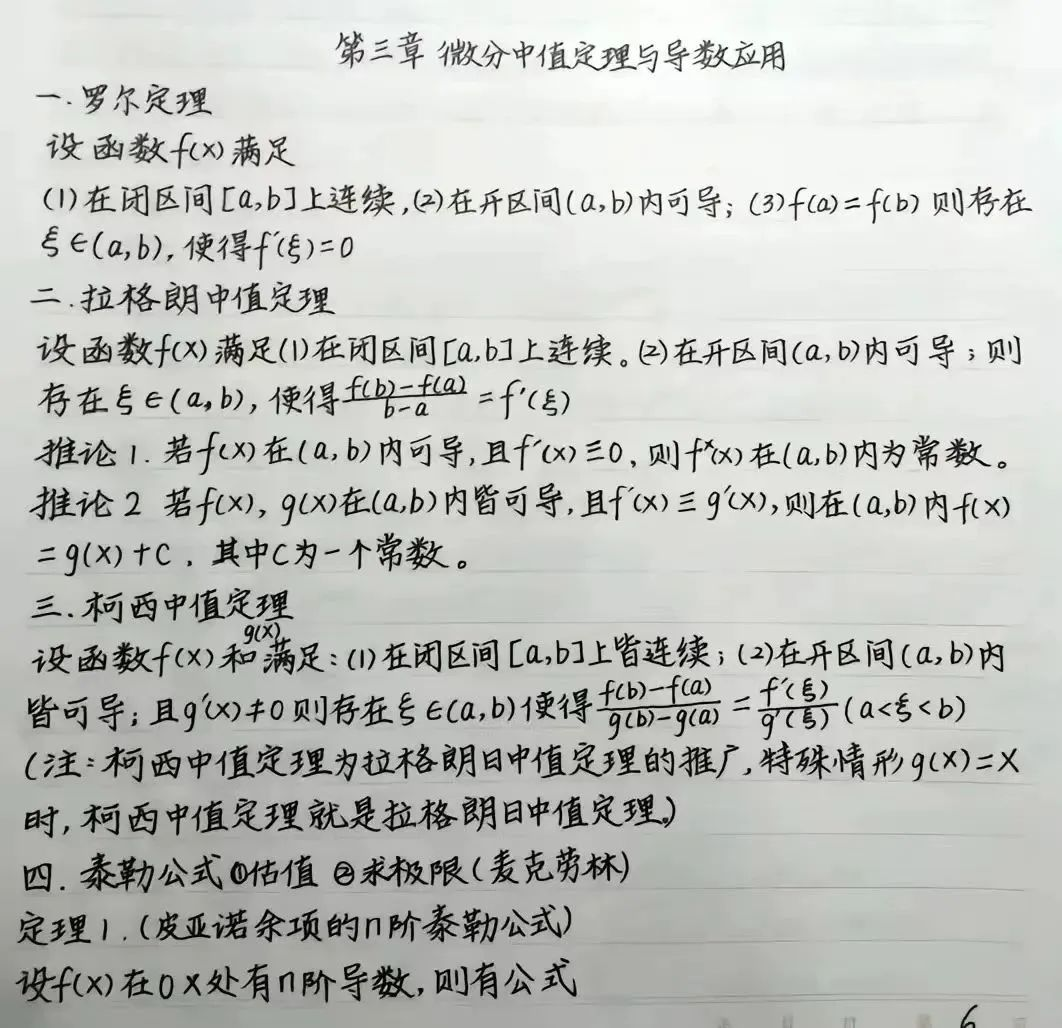 第三章 微分中值定理与导数应用
一.罗尔定理
设函数f(x)满足
(1)在闭区间[a,b]上连续,(2)在开区间(a,b)内可导; (3)f(a)=f(b) 则存在
ξ∈(a,b), 使得f′(ξ)=0
二.拉格朗中值定理
设函数f(x)满足(1)在闭区间[a,b]上连续。(2)在开区间(a,b)内可导;则
存在ξ∈(a,b), 使得\frac{f(b)-f(a)}{b-a}=f′(ξ)
推论1. 若f(x)在(a,b)内可导,且f′(x)≡0, 则fˣ(x)在(a,b)内为常数。
推论2 若f(x), g(x)在(a,b)内皆可导,且f′(x)≡g′(x),则在(a,b)内f(x)
=g(x)+C, 其中C为一个常数。
三.柯西中值定理
设函数f(x)和g(x)满足:(1)在闭区间[a,b]上皆连续; (2)在开区间(a,b)内
皆可导;且g′(x)≠0则存在ξ∈(a,b)使得\frac{f(b)-f(a)}{g(b)-g(a)}=\frac{f′(ξ)}{g′(ξ)}(a<ξ<b)
(注:柯西中值定理为拉格朗日中值定理的推广,特殊情形g(x)=x
时,柯西中值定理就是拉格朗日中值定理。)
四.泰勒公式①估值 ②求极限(麦克劳林)
定理1.(皮亚诺余项的n阶泰勒公式)
设f(x)在0x处有n阶导数,则有公式
6